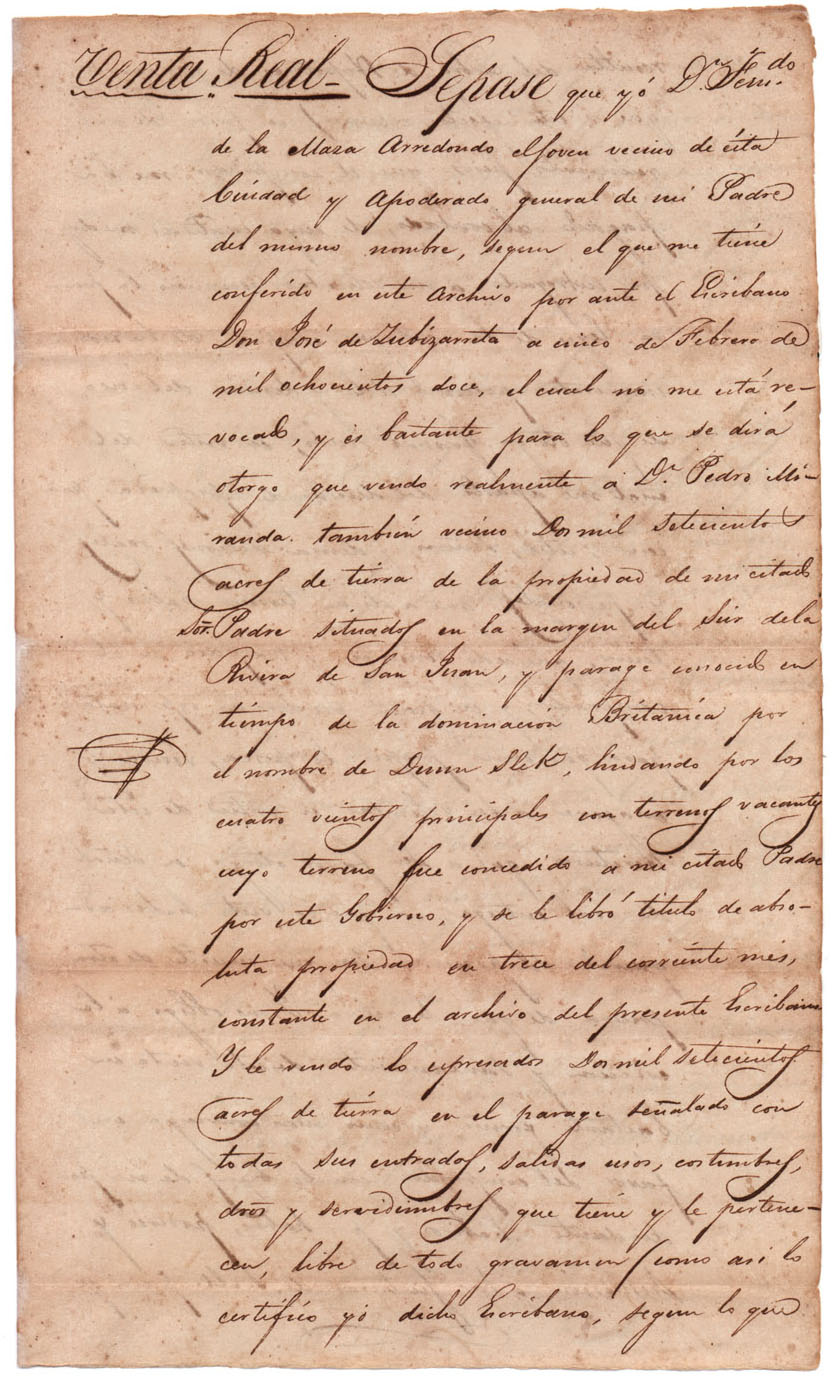 Venta Real – Sepase que yó Dn. Fern.do
de la Maza Arredondo el Joven vecino de ésta
Ciudad y Apoderado general de mi Padre
del mismo nombre, segun el que me tiène
conferido en este Archivo por ante el Escribano
Don José de Zubizarreta a cinco de Febrero de
mil ochocientos doce, el cual no me está re-
vocado, y és bastante para lo que se dirá
otorgo que vendo realmente á Dn. Pedro Mi-
randa. también vecino Dos mil setecientos
acres de tiérra de la propiedad de mi citado
Sor. Padre situados en la margen del Sur de la
Rivera de San Juan, y parage conocido en
tiémpo de la dominación Británica por
el nombre de Dunn, lindando por los
cuatro vientos principales con terrenos vacantes
cuyo terreno fue concedido a mi citado Padre
por este Gobierno, y se le libró titulo de abso-
luta propiedad en trece del corriénte mes,
constante en el archivo del presente Escribano
Y le vendo lo espresados Dos mil setecientos
acres de tiérra en el parage señalado con
todas sus entrados, salidas usos, costumbres,
dros y servidumbres que tiène y le pertene-
cen, libre de todo gravamen (como asi lo
certifico yó dicho Escribano, segun lo que